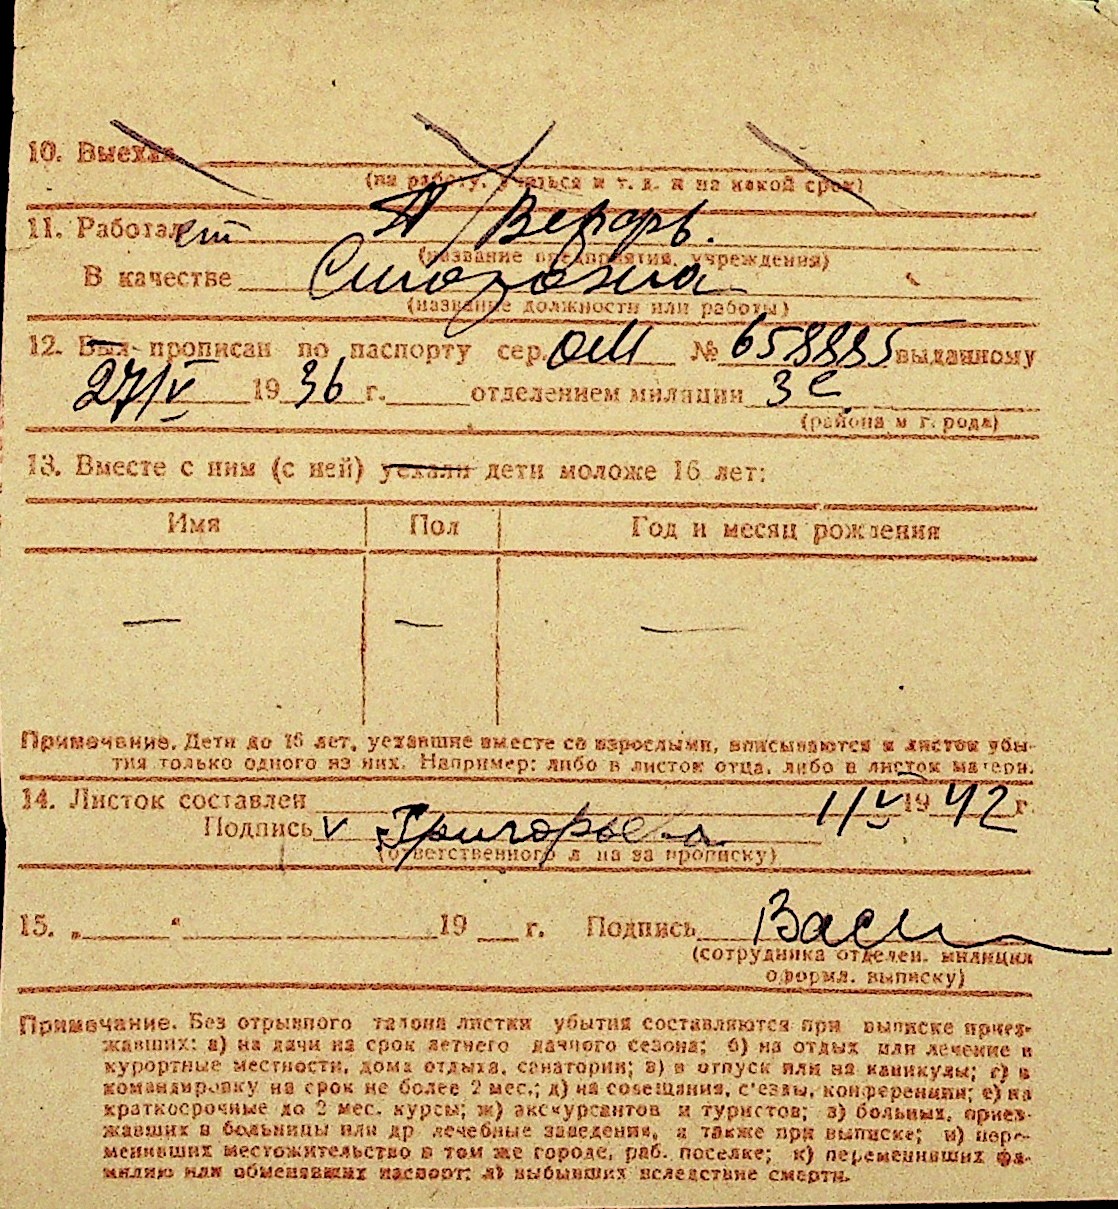 10. Выехал
(на работу, учиться и т. д. и на какой срок)
11. Работает
(название предприятия, учреждения)
В качестве
(название должности или работы)
12. Был прописан по паспорту сер. ОМ № 658885 выданному
27/V 1936 г. отделением милиции 3е
(района и города)
13. Вместе с ним (с ней) уехали дети моложе 16 лет:
Имя Пол Год и месяц рождения
— — —
Примечание. Дети до 16 лет, уехавшие вместе со взрослыми, вписываются в листок убы-
тия только одного из них. Например: либо в листок отца, либо в листок матери.
14. Листок составлен 1/V 1942 г.
Подпись v Григорьева
(ответственного лица за прописку)
15. „ “ 19 г. Подпись Васи
(сотрудника отделен. милиции
оформл. выписку)
Примечание. Без отрывного талона листки убытия составляются при выписке приез-
жавших: а) на дачи на срок летнего дачного сезона; б) на отдых или лечение в
курортные местности, дома отдыха, санатории; в) в отпуск или на каникулы; г) в
командировку на срок не более 2 мес.; д) на совещания, с'езды, конференции; е) на
краткосрочные до 2 мес. курсы; ж) экскурсантов и туристов; з) больных, приез-
жавших в больницы или др лечебные заведения, а также при выписке; и) пере-
менивших местожительство в том же городе, раб. поселке; к) переменивших фа-
милию или обменявших паспорт; л) выбывших вследствие смерти.